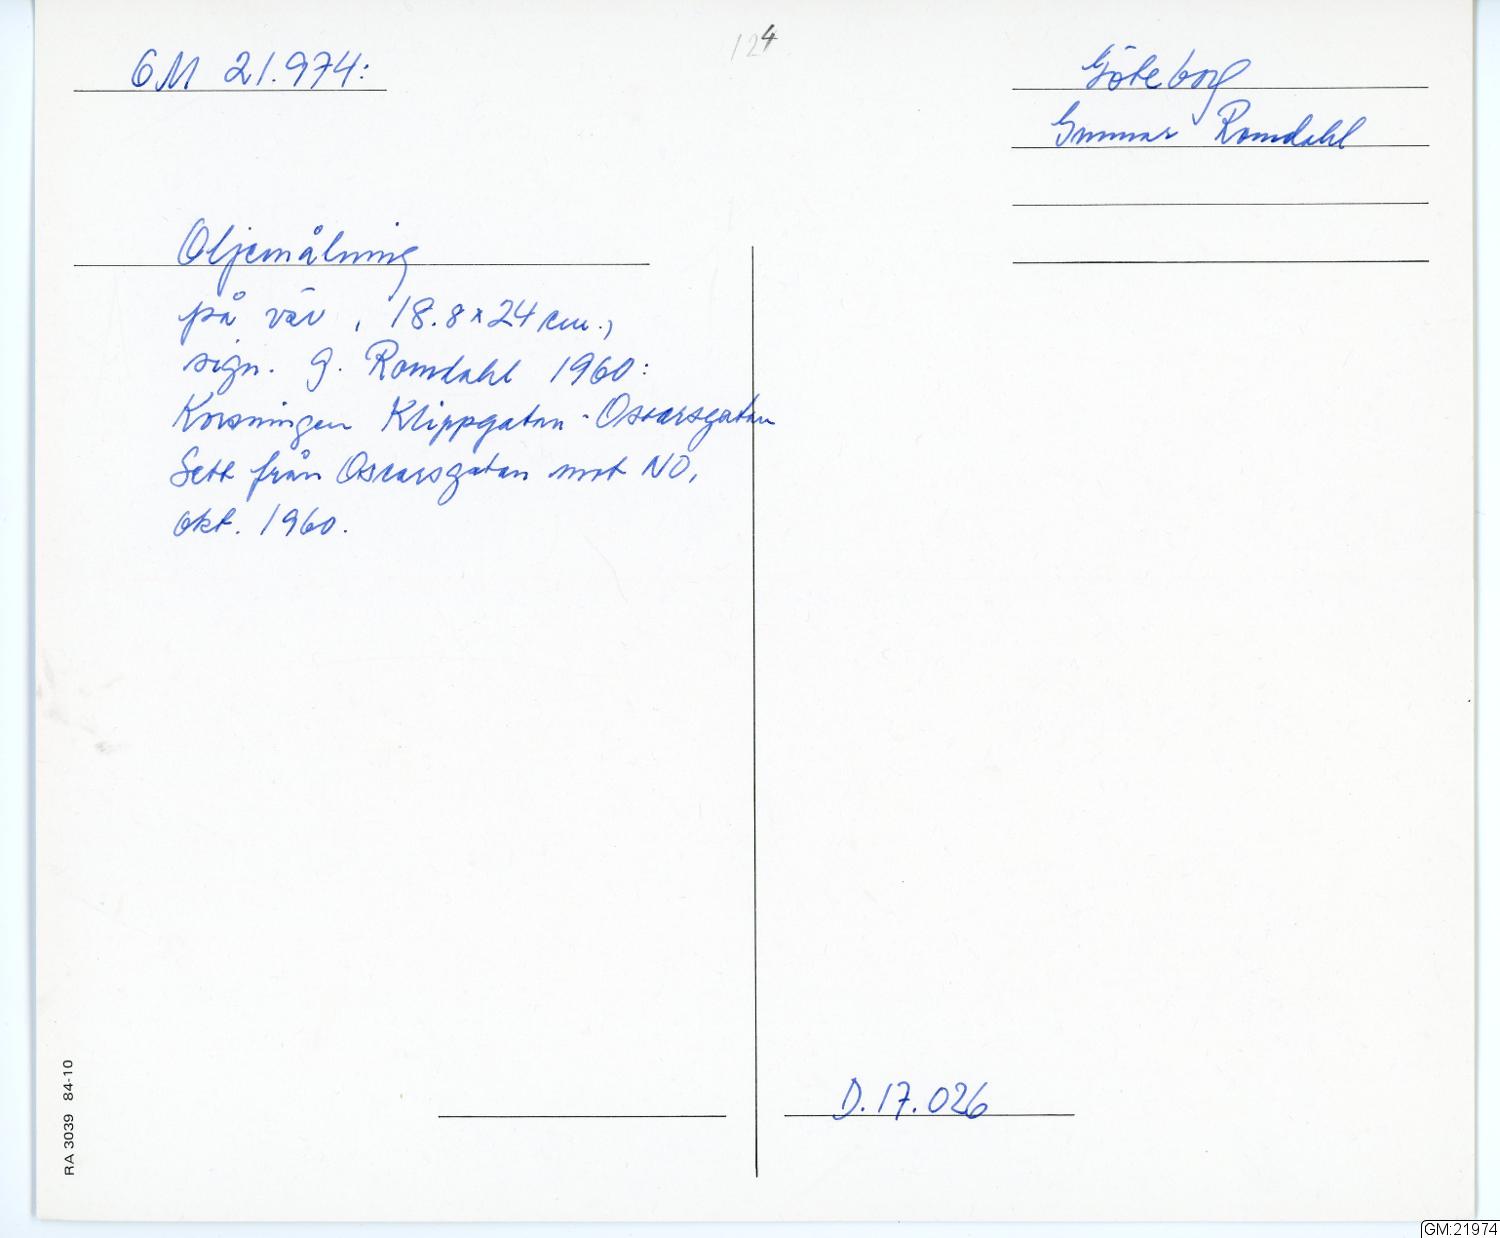 124
GM 21.974:
Göteborg
Gunnar Romdahl
Oljemålning
på väv, 18.8 x 24 cm.,
sign. G. Romdahl 1960:
Korsningen Klippgatan - Oscarsgatan
Sett från Oscarsgatan mot NO,
okt. 1960.
D.17.026
RA 3039 84-10
GM:21974